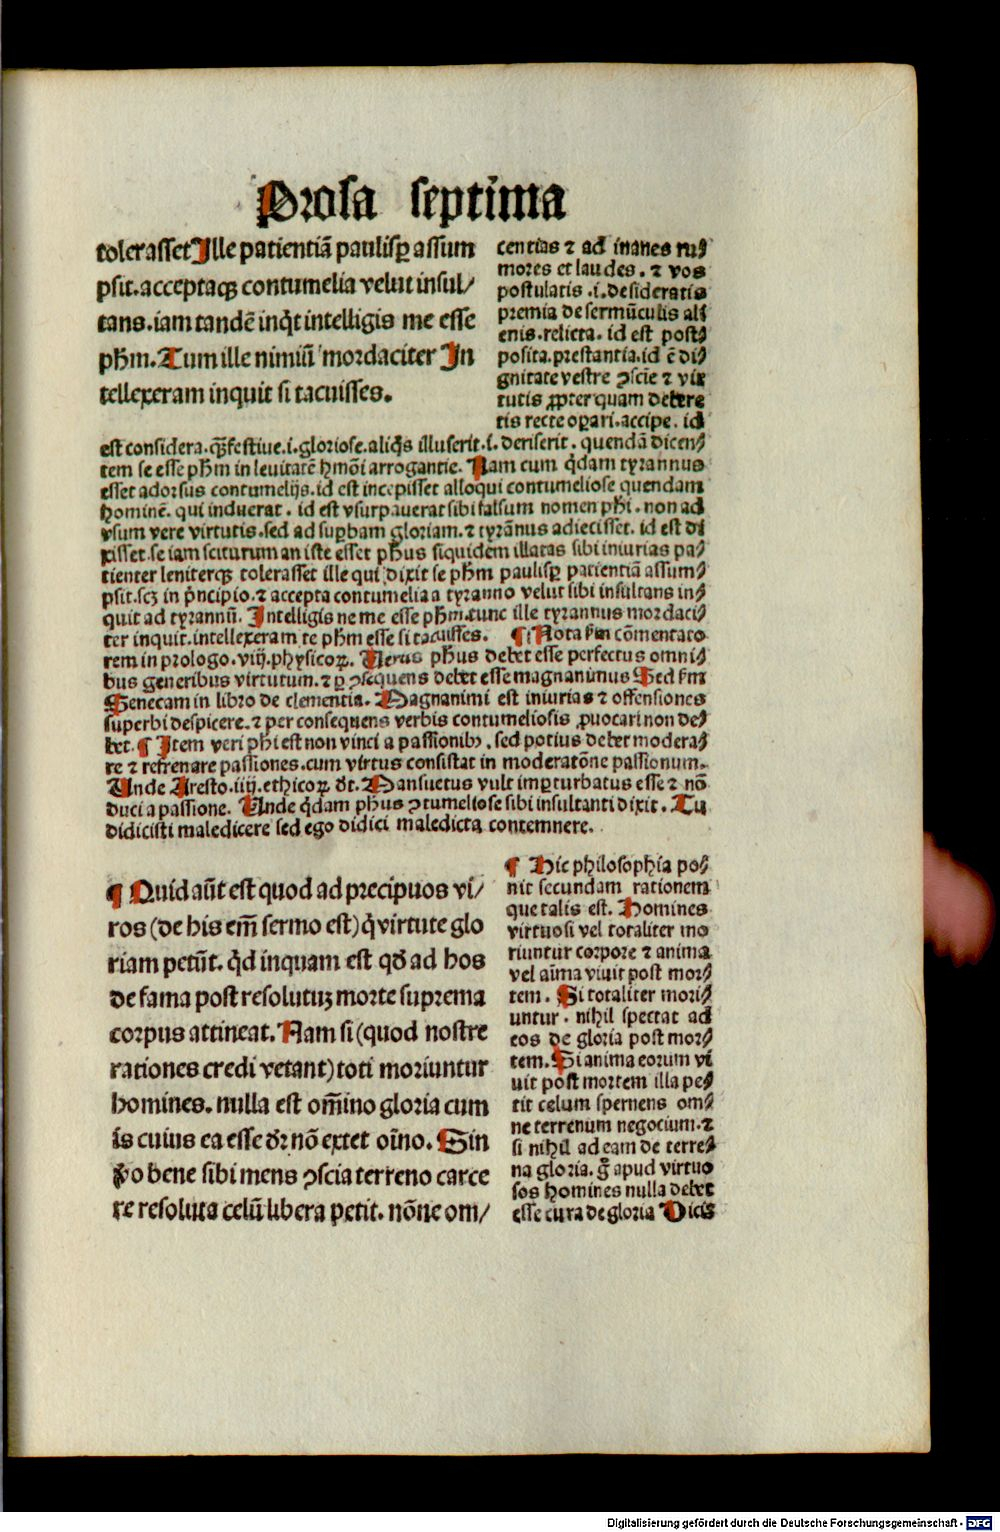 Prosa septima
tolerasset Ille patientiā paulisꝑ assum
psit. acceptaqꝫ contumelia velut insul/
tans. iam tandē inqͥt intelligis me esse
pħm. Tum ille nimiū mordaciter In
tellexeram inquit si tacuisses.
centias ⁊ ad inanes ru/
mores et laudes. ⁊ vos
postulatis .i. desideratis
premia de sermūculis ali
enis. relicta. id est post/
posita. prestantia. id ē di/
gnitate vestre ꝯscīe ⁊ vir
tutis ꝓpter quam debere
tis recte oꝑari. accipe. id
est considera. qͣꝫ festiue .i. gloriose. aliqͥs illuserit .i. deriserit. quendā dicen/
tem se esse pħm in leuitatē hmōi arrogantie. Nam cum qͥdam tyrannus
esset adorsus contumelijs. id est incepisset alloqui contumeliose quendam
hominē. qui induerat. id est vsurpauerat sibi falsum nomen phi. non ad
vsum vere virtutis. sed ad suꝑbam gloriam. ⁊ tyrānus adiecisset. id est di
xisset. se iam sciturum an iste esset pħus siquidem illatas sibi iniurias pa/
tienter leniterqꝫ tolerasset ille qui dixit se pħm paulisꝑ patientiā assum/
psit. scꝫ in pͥncipio. ⁊ accepta contumelia a tyranno velut sibi insultans in/
quit ad tyrannū. Intelligis ne me esse pħm. tunc ille tyrannus mordaci/
ter inquit. intellexeram te pħm esse si tacuisses. ¶ Nota fm cōmentato
rem in prologo. viij. physicoꝝ. Verus pħus debet esse perfectus omni/
bus generibus virtutum. ⁊ ꝑ ꝯsequens debet esse magnanimus Sed fm
Senecam in libro de clementia. Magnanimi est iniurias ⁊ offensiones
superbi despicere. ⁊ per consequens verbis contumeliosis ꝓuocari non de/
bet. ¶ Item veri phi est non vinci a passionibꝫ. sed potius debet modera/
re ⁊ refrenare passiones. cum virtus consistat in moderatōne passionum.
Unde Aresto. iiij. ethicoꝝ. dt. Mansuetus vult imꝑturbatus esse ⁊ nō
duci a passione. Unde qͥdam pħus ꝯtumeliose sibi insultanti dixit. Tu
didicisti maledicere sed ego didici maledicta contemnere.
¶ Quid aūt est quod ad precipuos vi/
ros (de his em̄ sermo est) qͥ virtute glo
riam petūt. qͥd inquam est qd̓ ad hos
de fama post resolutuꝫ morte suprema
corpus attineat. Nam si (quod nostre
rationes credi vetant) toti moriuntur
homines. nulla est om̄ino gloria cum
is cuius ea esse dr̄ nō extet oīno. Sin
ꝟo bene sibi mens ꝯscia terreno carce
re resoluta celū libera petit. nōne om/
¶ Hic philosophia po/
nit secundam rationem
que talis est. Homines
virtuosi vel totaliter mo
riuntur corpore ⁊ anima
vel aīma viuit post mor/
tem. Si totaliter mori/
untur. nihil spectat ad
eos de gloria post mor/
tem. Si anima eorum vi
uit post mortem illa pe/
tit celum spernens om/
ne terrenum negocium. ⁊
si nihil ad eam de terre/
na gloria. gͦ apud virtuo
sos homines nulla debet
esse cura de gloria Dicis
Digitalisierung gefördert durch die Deutsche Forschungsgemeinschaft - DFG